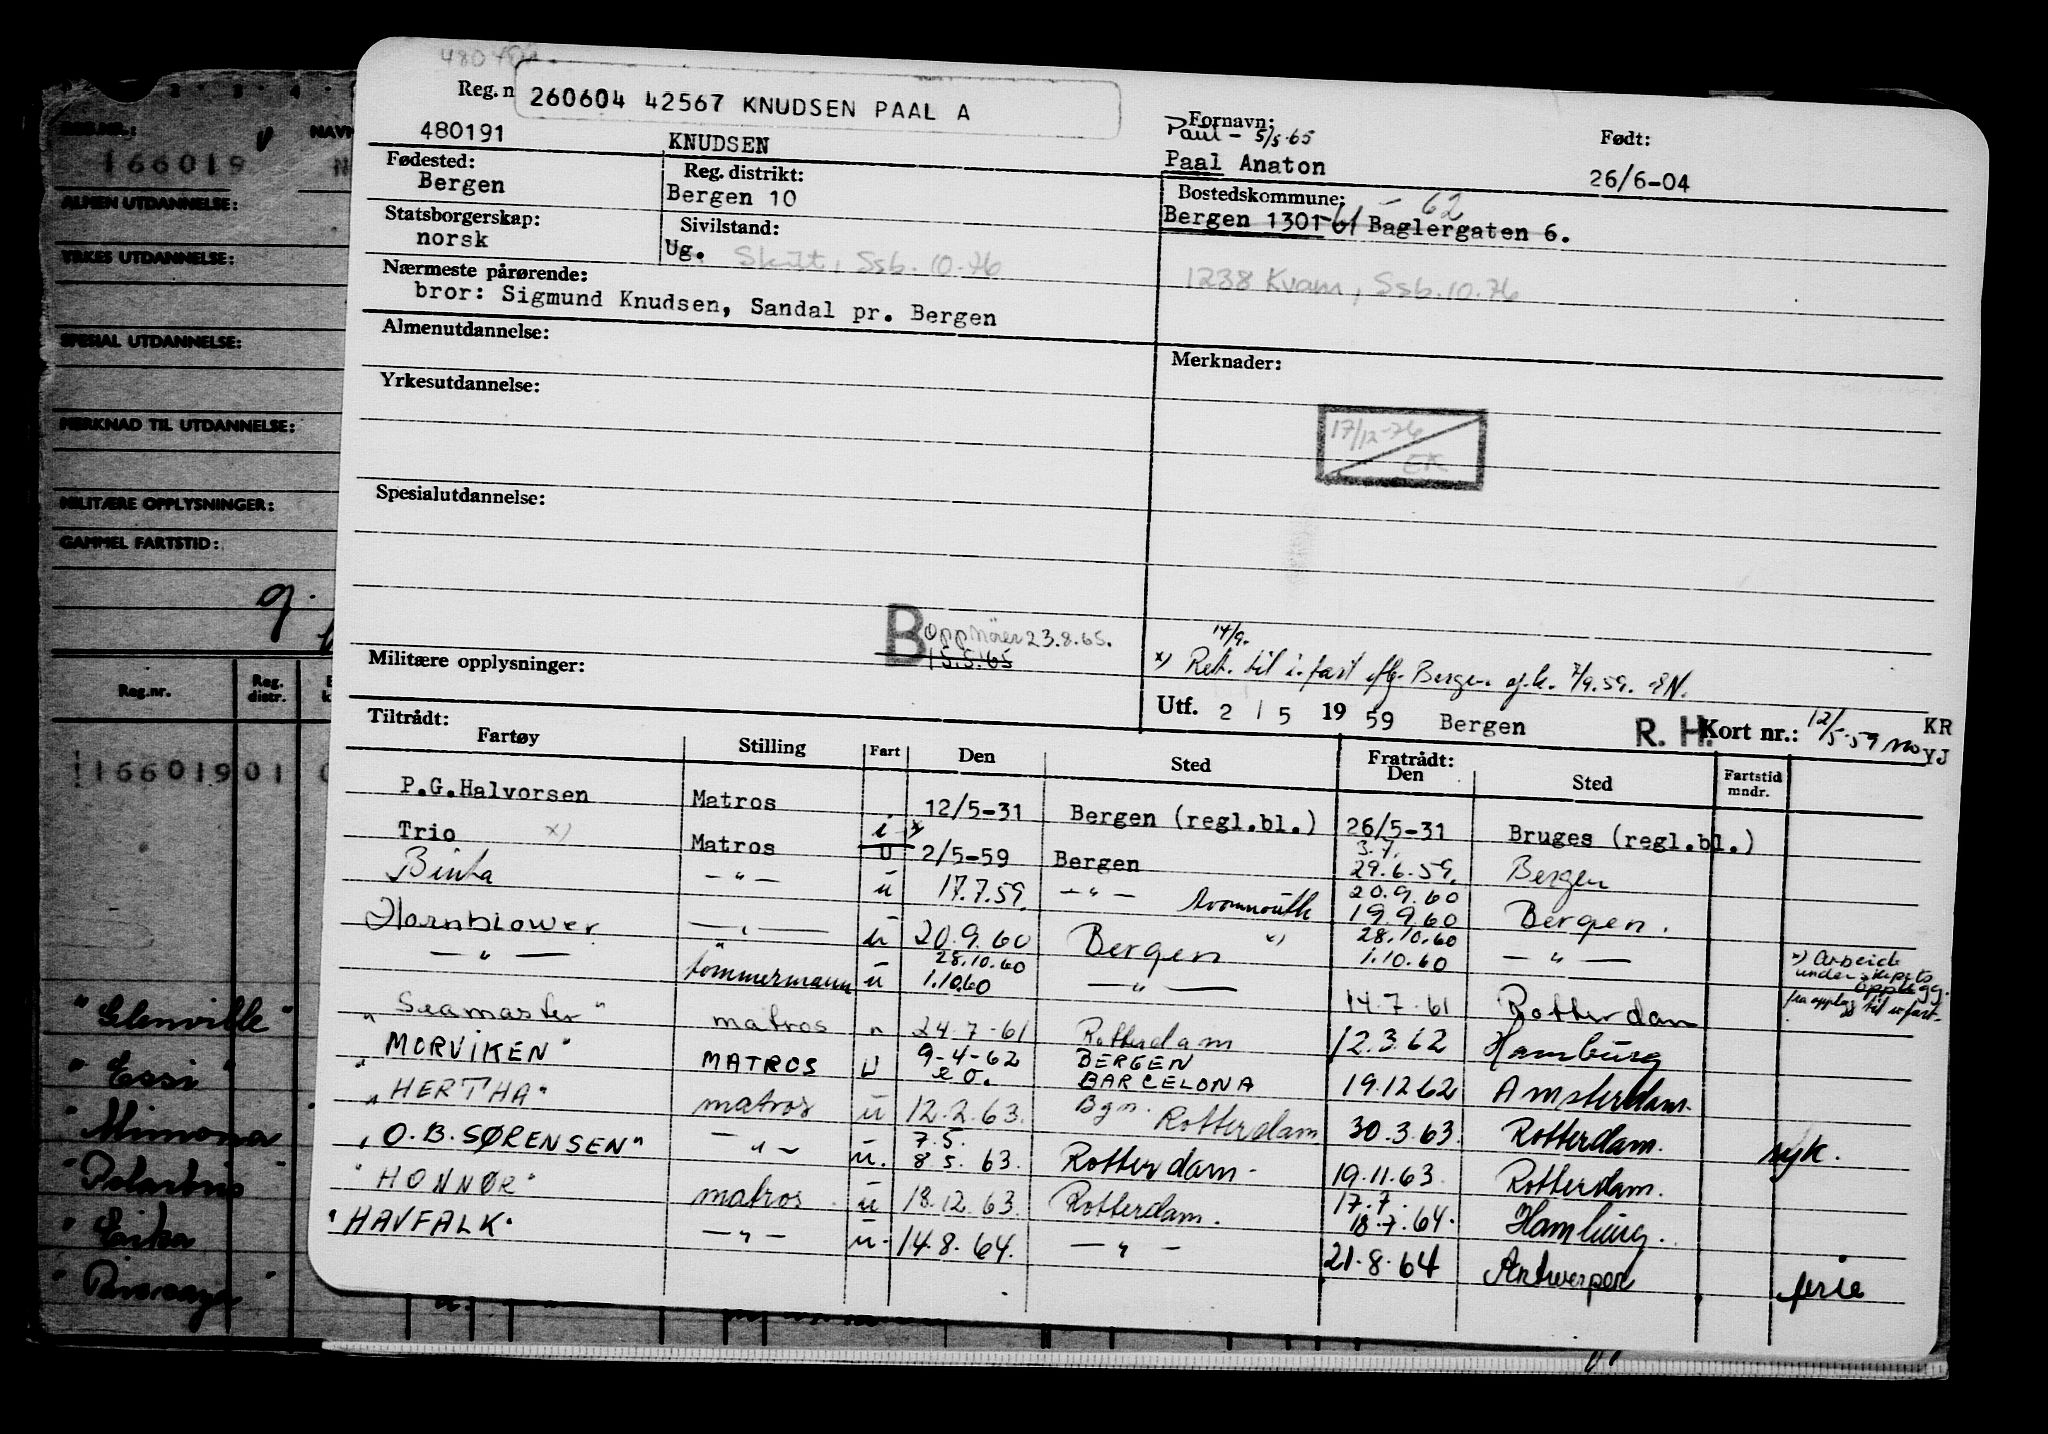 4807
Reg. n 260604 42567 KNUDSEN PAAL A
480191 KNUDSEN
Fornavn: Paul - 5/5.65
Paal Anaton
Født: 26/6-04
Fødested: Bergen
Reg. distrikt: Bergen 10
Bostedskommune: - 62
Bergen 1301-61 Baglergaten 6.
Statsborgerskap: norsk
Sivilstand: Ug. Skilt, Ssb. 10.76
1238 Kvam, Ssb. 10.76
Nærmeste pårørende:
bror: Sigmund Knudsen, Sandal pr. Bergen
Almenutdannelse:
Merknader:
Yrkesutdannelse:
17/12-76
EK
Spesialutdannelse:
B oppnåer 23.8.65.
15.5.65
Militære opplysninger:
14/9.
x) Ret. til i. fart iflg. Bergen 7/9.59.
Utf. 2 / 5 19 59 Bergen R. H. Kort nr.: 12/5-59 KR
YJ
Tiltrådt: Fratrådt:
Fartøy Stilling Fart Den Sted Den Sted Fartstid mndr.
P.G.Halvorsen Matros 12/5-31 Bergen (regl.bl.) 26/5-31 Bruges (regl.bl.)
Trio x) Matros i x) U 2/5-59 Bergen 3.7. 29.6.59. Bergen
Binta -"- u 17.7.59. -"- Avonmouth 20.9.60 19.9.60 Bergen.
Hornblower -"- u 20.9.60 Bergen x) 28.10.60 1.10.60 -"- x) Arbeide under skipets opplegg.
-"- tømmermann u 28.10.60 1.10.60 -"- 14.7-61 Rotterdam fra opplegg til u fart.
"Seamaster" matros " 24.7-61 Rotterdam 12.3.62 Hamburg
"MORVIKEN" MATROS U 9-4-62 BERGEN BARCELONA 19.12.62 Amsterdam.
"HERTHA" matros u 12.2.63. Bgn. Rotterdam 30.3.63. Rotterdam. syk.
"O.B.SØRENSEN" -"- u. 7.5. 8 5. 63. Rotterdam. 19.11.63. Rotterdam.
"HONNØR" matros u 18.12.63. Rotterdam. 17.7. 18.7.64. Hamburg.
"HAVFALK" -"- u. 14.8.64. -"- 21.8.64 Antwerpen ferie
REG.NR.: NAVN
166019
ALMEN UTDANNELSE:
YRKES UTDANNELSE:
SPESIAL UTDANNELSE:
MERKNAD TIL UTDANNELSE:
MILITÆRE OPPLYSNINGER:
GAMMEL FARTSTID:
Reg.nr. Reg. distr.
166019 01
"Glenville"
"Essi"
"Mimona
"Polarbris
"Erika